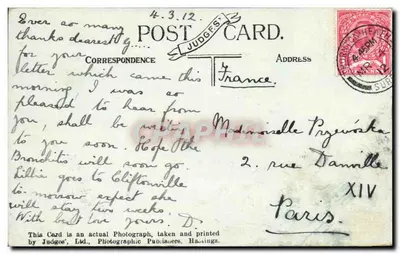 4.3.12.
Ever so many
thanks dearest G....
for your
letter which came this
morning I was so
pleased to hear from
you, shall be writing
to you soon. Hope the
Bronchitis will soon go.
Lillie goes to Cliftonville
to morrow, expect she
will stay two weeks.
With best love yours. D.
POST CARD.
"JUDGES"
CORRESPONDENCE
ADDRESS
France.
Mademoiselle
2, rue Danville
XIV
Paris.
4
12
This Card is an actual Photograph, taken and printed
by Judges', Ltd., Photographic Publishers, Hastings.